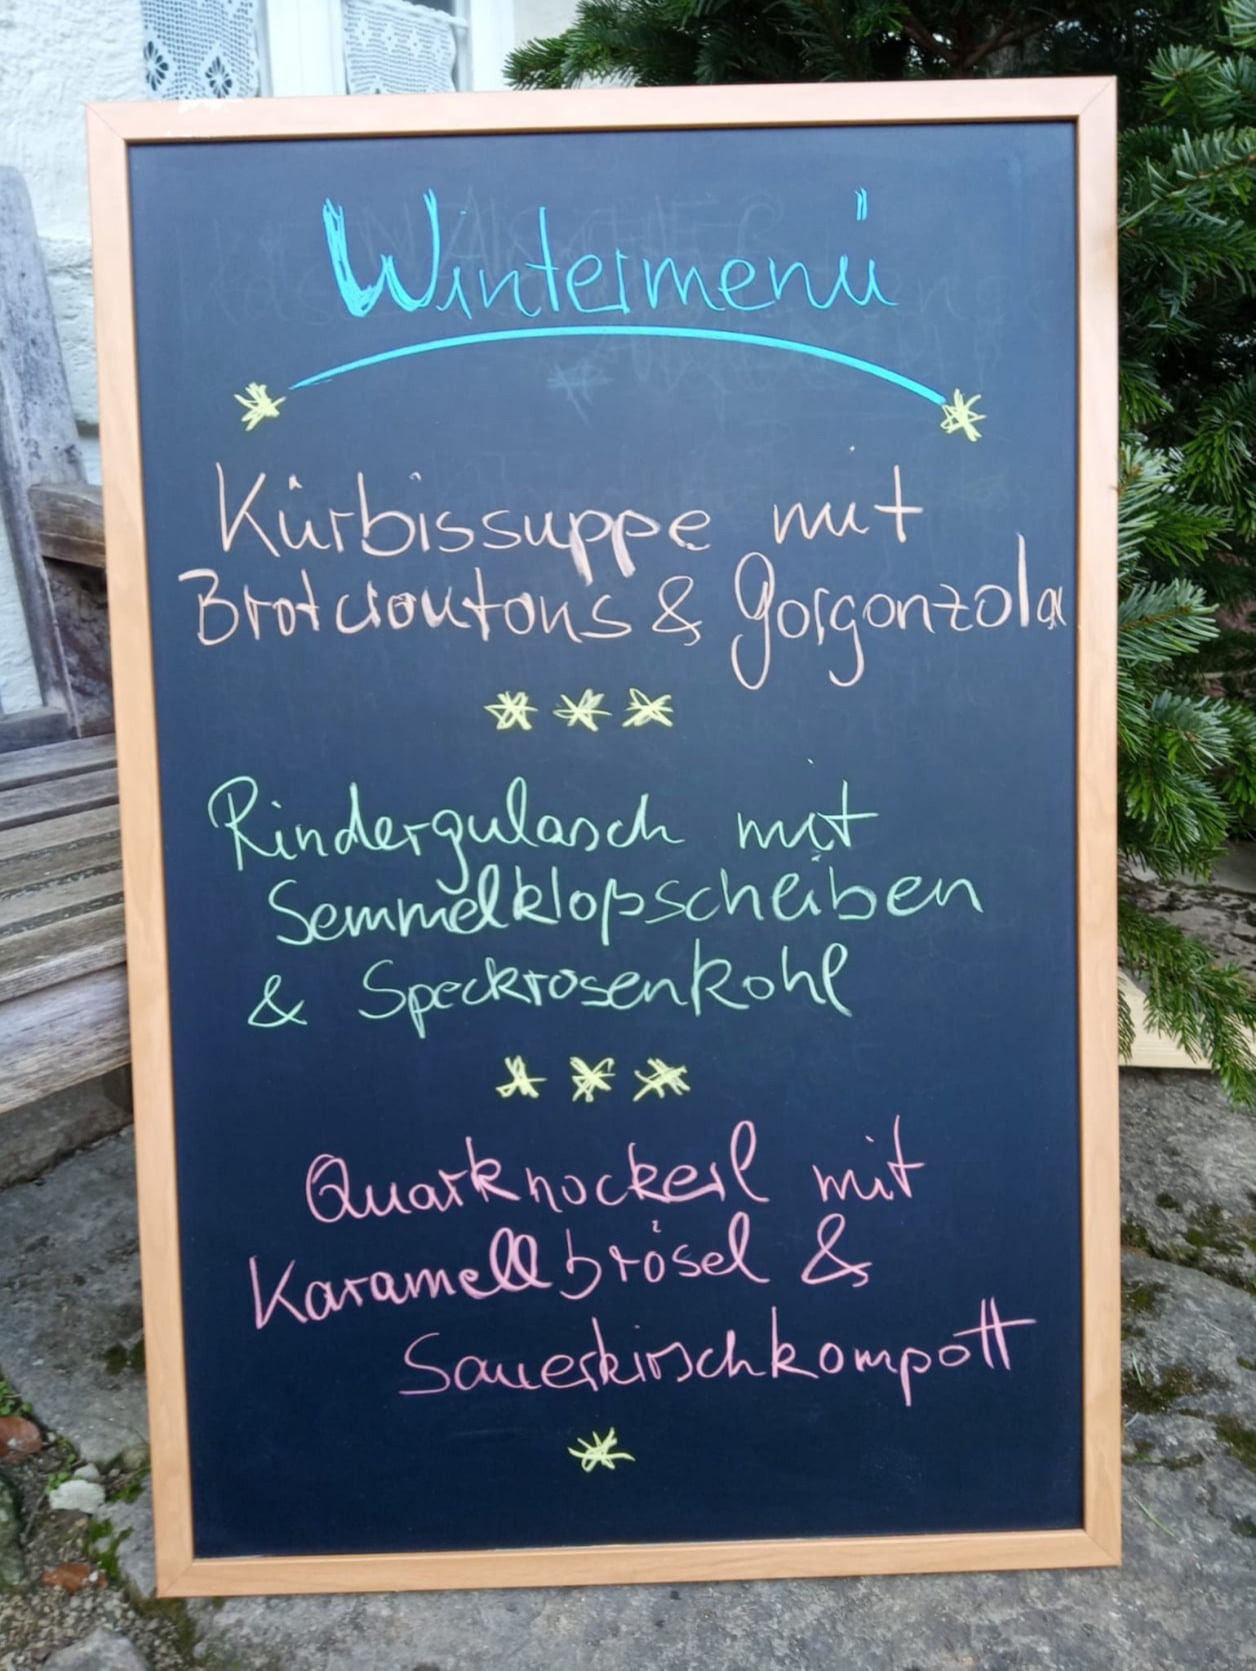 Wintermenü
Kürbissuppe mit
Brotcroutons & Gorgonzola
Rindergulasch mit
Semmelkloßscheiben
& Speckrosenkohl
Quarknockerl mit
Karamellbrösel &
Sauerkirschkompott